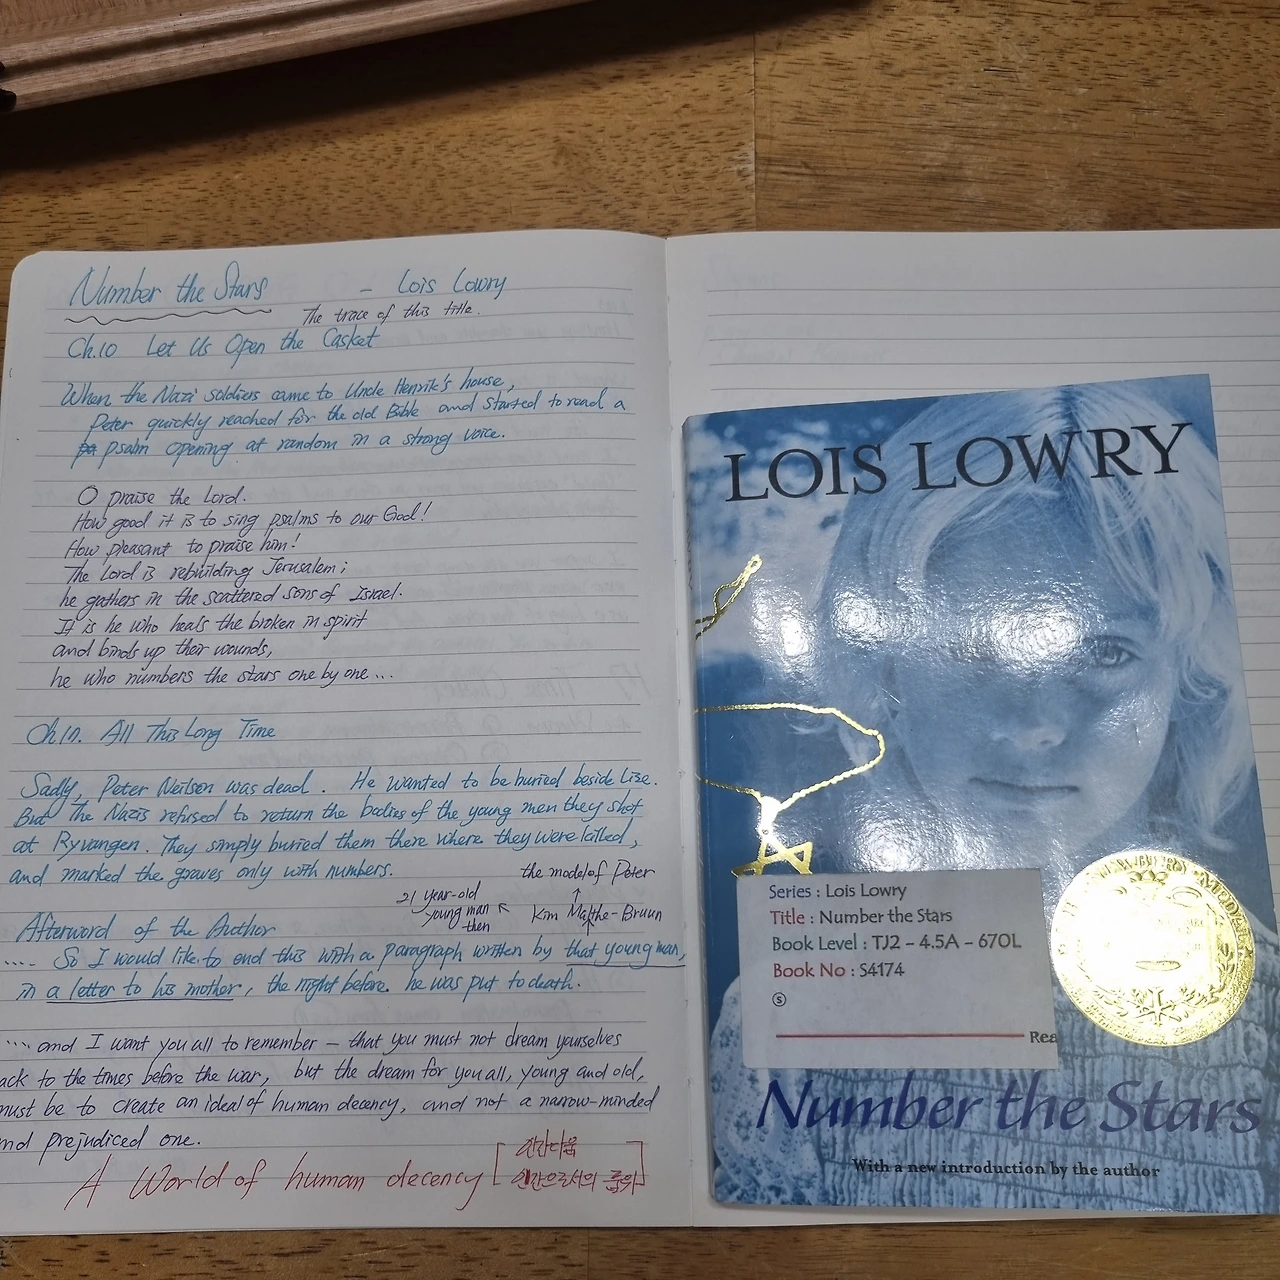 Number the Stars - Lois Lowry
The trace of this title.
Ch.10 Let Us Open the Casket
When the Nazi soldiers came to Uncle Henrik's house,
Peter quickly reached for the old Bible and started to read a
psalm opening at random in a strong voice.
O praise the Lord.
How good it is to sing psalms to our God!
How pleasant to praise him!
The Lord is rebuilding Jerusalem;
he gathers in the scattered sons of Israel.
It is he who heals the broken in spirit
and binds up their wounds,
he who numbers the stars one by one...
Ch.17. All This Long Time
Sadly, Peter Neilson was dead. He wanted to be buried beside Lise.
But the Nazis refused to return the bodies of the young men they shot
at Ryvangen. They simply buried them there where they were killed,
and marked the graves only with numbers.
the model of Peter
21 year-old
young man
then
Kim Malthe-Bruun
Afterword of the Author
.... So I would like to end this with a paragraph written by that young man,
in a letter to his mother, the night before he was put to death.
.... and I want you all to remember — that you must not dream yourselves
ack to the times before the war, but the dream for you all, young and old,
must be to create an ideal of human decency, and not a narrow-minded
nd prejudiced one.
A World of human decency
인간다움
인간으로서의 품위
LOIS LOWRY
Series : Lois Lowry
Title : Number the Stars
Book Level : TJ2 - 4.5A - 670L
Book No : S4174
Ⓢ
Rea
Number the Stars
With a new introduction by the author